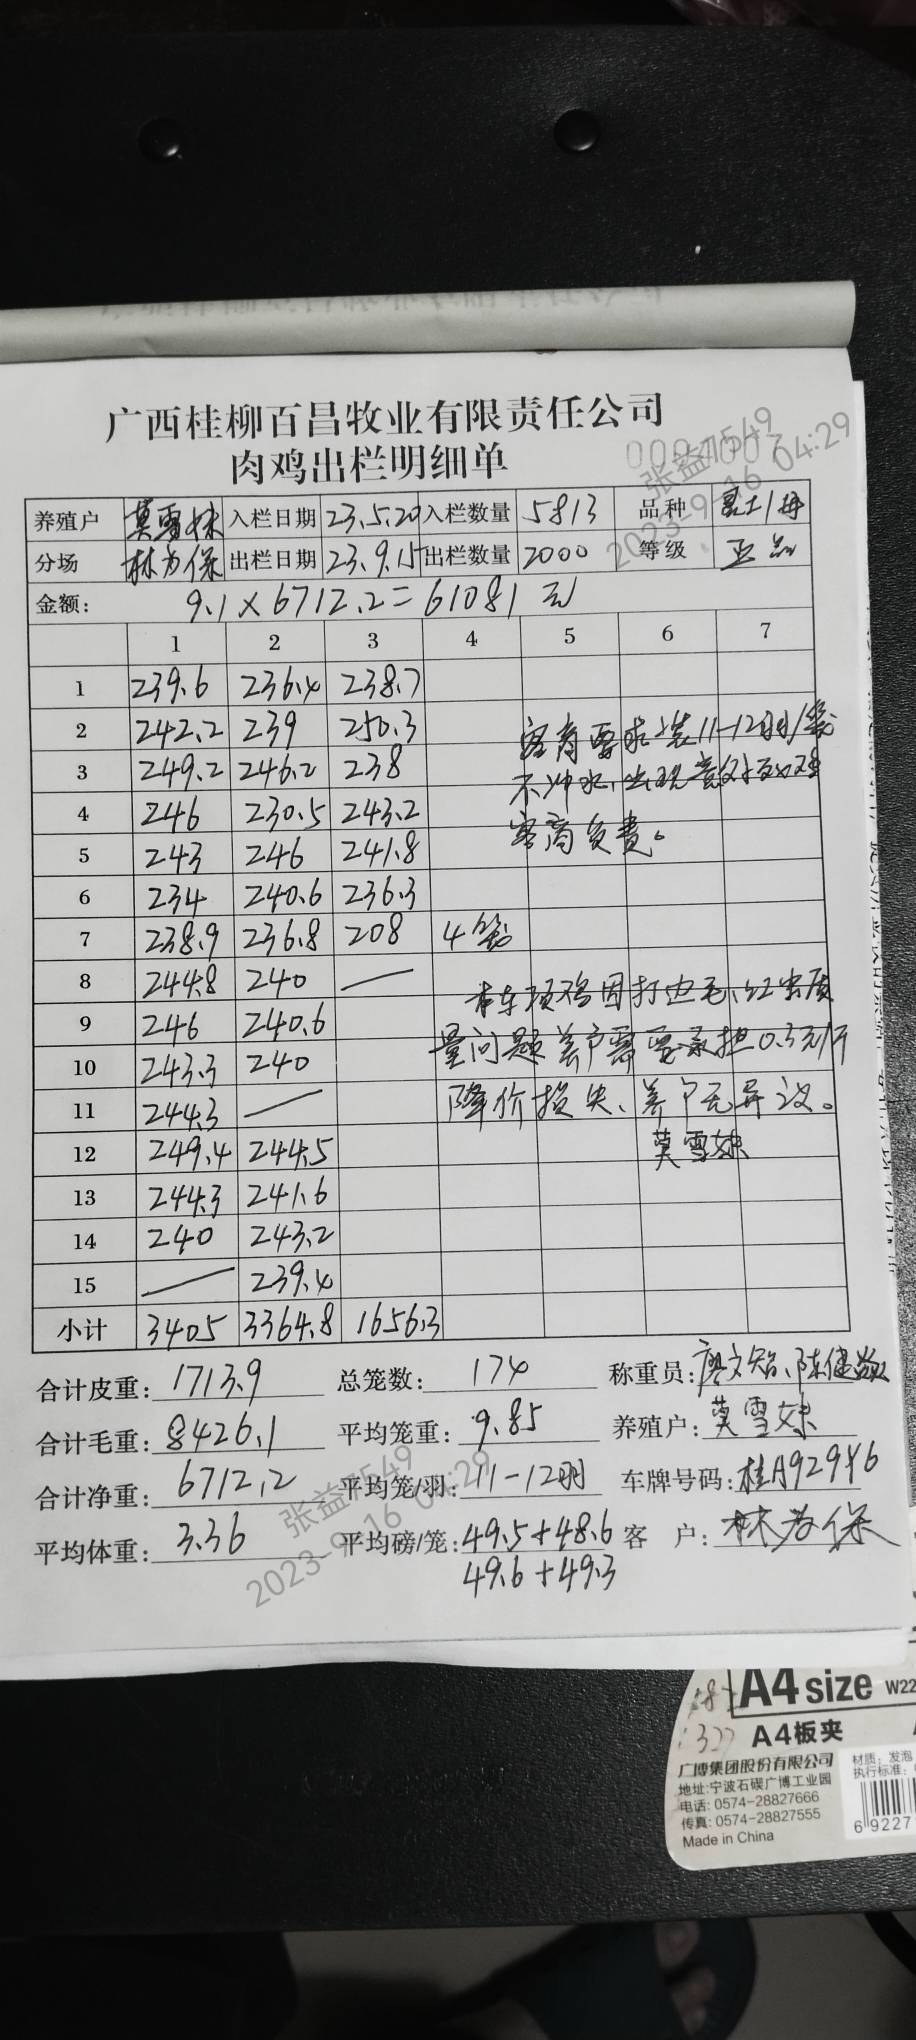 广西桂柳百昌牧业有限责任公司
肉鸡出栏明细单
张益7549
2023-9-16 04:29
养殖户 莫雪妹 入栏日期 23.5.20 入栏数量 5813 品种
分场 林为保 出栏日期 23.9.15 出栏数量 2000 等级 正品
金额: 9.1×6712.2=61081元
1 2 3 4 5 6 7
1 239.6 236.4 238.7
2 242.2 239 250.3
客商要求装11-12羽/笼
3 249.2 246.2 238
不冲水,出现意外死亡
4 246 230.5 243.2
客商负责。
5 243 246 241.8
6 234 240.6 236.3
7 238.9 236.8 208 4笼
8 244.8 240 —
本车项鸡因打边毛、
9 246 240.6
量问题养户需要承担0.3元/斤
10 243.3 240
11 244.3 —
降价损失、养户无异议。
12 249.4 244.5
莫雪妹
13 244.3 241.6
14 240 243.2
15 — 239.4
小计 3405 3364.8 1656.3
合计皮重: 1713.9 总笼数: 174 称重员:
合计毛重: 8426.1 平均笼重: 9.85 养殖户: 莫雪妹
合计净重: 6712.2 平均笼/羽: 11-12羽 车牌号码: 桂A929Y6
平均体重: 3.36 平均磅/笼: 49.5+48.6 客 户: 林为保
49.6+49.3
张益7549
2023-9-16 04:29
A4 size W22
A4板夹
广博集团股份有限公司
地址:宁波石碶广博工业园
电话: 0574-28827666
传真: 0574-28827555
Made in China
材质: 发泡
执行标准:
6 9227